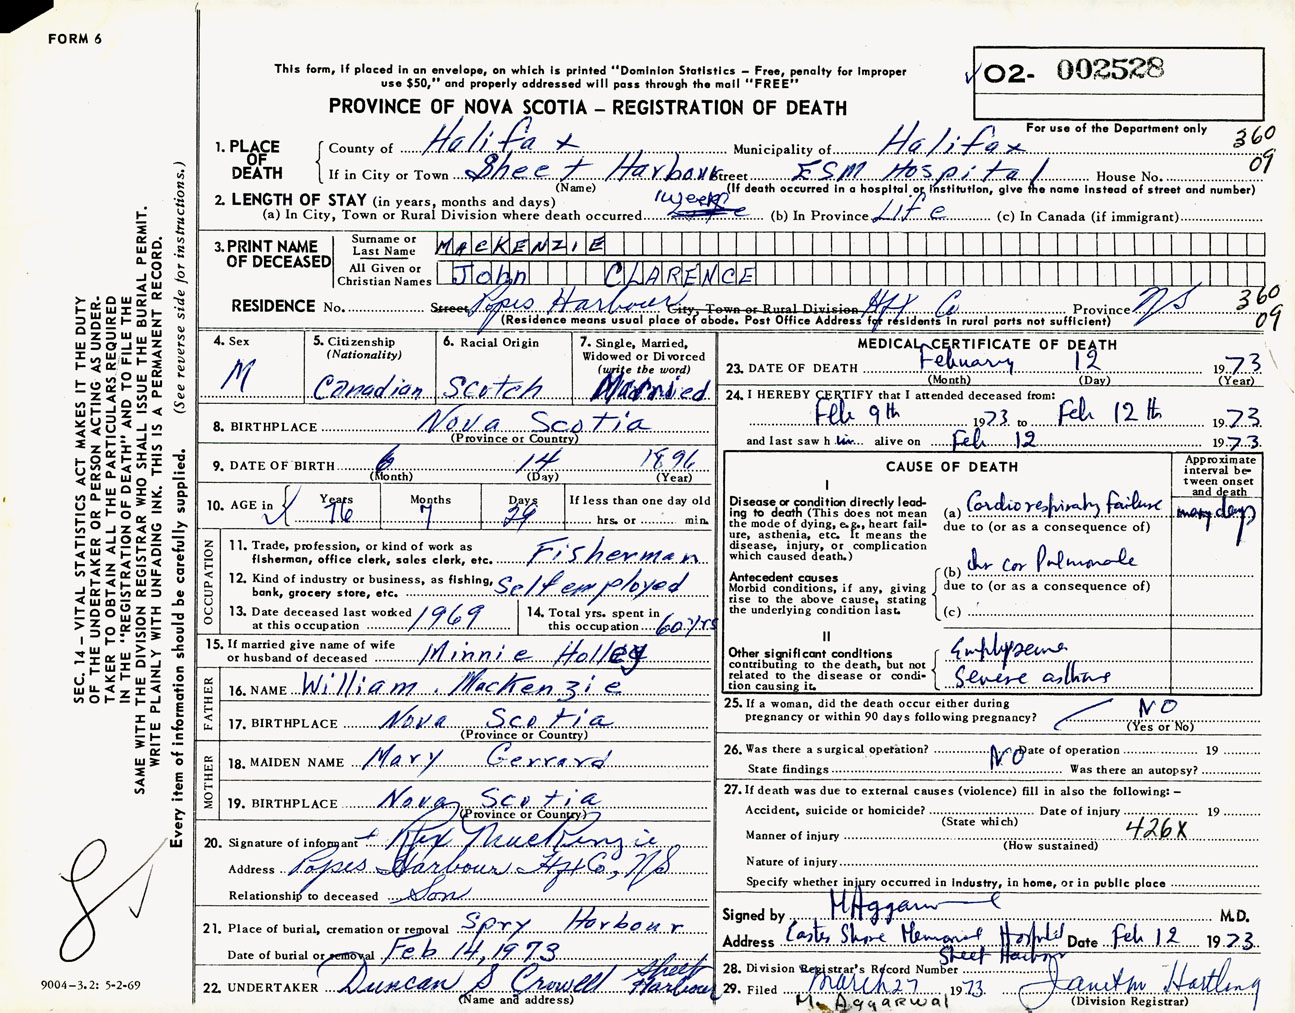 FORM 6
This form, if placed in an envelope, on which is printed "Dominion Statistics – Free, penalty for improper
use $50," and properly addressed will pass through the mail "FREE"
PROVINCE OF NOVA SCOTIA – REGISTRATION OF DEATH
✓ O2- 002528
For use of the Department only
360
09
1. PLACE OF DEATH
County of Halifax Municipality of Halifax
If in City or Town Sheet Harbour Street ESM Hospital House No.
(Name) (If death occurred in a hospital or institution, give the name instead of street and number)
2. LENGTH OF STAY (in years, months and days)
(a) In City, Town or Rural Division where death occurred 1 week (b) In Province Life (c) In Canada (if immigrant)
3. PRINT NAME OF DECEASED
Surname or Last Name MACKENZIE
All Given or Christian Names John CLARENCE
RESIDENCE No. Street Popes Harbour City, Town or Rural Division Hfx Co Province NS
360
09
(Residence means usual place of abode. Post Office Address for residents in rural parts not sufficient)
4. Sex
M
5. Citizenship
(Nationality)
Canadian
6. Racial Origin
Scotch
7. Single, Married,
Widowed or Divorced
(write the word)
Married
8. BIRTHPLACE Nova Scotia
(Province or Country)
9. DATE OF BIRTH 6 14 1896
(Month) (Day) (Year)
10. AGE in ✓ Years Months Days If less than one day old
76 7 29 hrs. or min.
OCCUPATION
11. Trade, profession, or kind of work as
fisherman, office clerk, sales clerk, etc. Fisherman
12. Kind of industry or business, as fishing,
bank, grocery store, etc. Self employed
13. Date deceased last worked
at this occupation 1969
14. Total yrs. spent in
this occupation 60 yrs
15. If married give name of wife
or husband of deceased Minnie Holley
FATHER
16. NAME William MacKenzie
17. BIRTHPLACE Nova Scotia
(Province or Country)
MOTHER
18. MAIDEN NAME Mary Gerrard
19. BIRTHPLACE Nova Scotia
(Province or Country)
20. Signature of informant Rex MacKenzie
Address Popes Harbour Hfx Co, NS
Relationship to deceased Son
21. Place of burial, cremation or removal Spry Harbour
Date of burial or removal Feb 14, 1973
22. UNDERTAKER Duncan S Crowell Sheet Harbour
(Name and address)
MEDICAL CERTIFICATE OF DEATH
23. DATE OF DEATH February 12 1973
(Month) (Day) (Year)
24. I HEREBY CERTIFY that I attended deceased from:
Feb 9th 1973 to Feb 12th 1973
and last saw him alive on Feb 12 1973
CAUSE OF DEATH
Approximate
interval be-
tween onset
and death
I
Disease or condition directly lead-
ing to death (This does not mean
the mode of dying, e.g., heart fail-
ure, asthenia, etc. It means the
disease, injury, or complication
which caused death.)
(a) Cardiorespiratory failure many days
due to (or as a consequence of)
Antecedent causes
Morbid conditions, if any, giving
rise to the above cause, stating
the underlying condition last.
(b) chr cor Pulmonale
due to (or as a consequence of)
(c)
II
Other significant conditions
contributing to the death, but not
related to the disease or condi-
tion causing it.
Emphysema
Severe asthma
25. If a woman, did the death occur either during
pregnancy or within 90 days following pregnancy? NO
(Yes or No)
26. Was there a surgical operation? NO Date of operation 19
State findings Was there an autopsy?
27. If death was due to external causes (violence) fill in also the following: –
Accident, suicide or homicide? Date of injury 19
(State which)
Manner of injury 426X
(How sustained)
Nature of injury
Specify whether injury occurred in industry, in home, or in public place
Signed by M Aggarwal M.D.
Address Easter Shore Memorial Hospital Date Feb 12 1973
Sheet Harbour
28. Division Registrar's Record Number
29. Filed March 27 1973 Hartling
(Division Registrar)
M. AGGARWAL
SEC. 14 – VITAL STATISTICS ACT MAKES IT THE DUTY
OF THE UNDERTAKER OR PERSON ACTING AS UNDER-
TAKER TO OBTAIN ALL THE PARTICULARS REQUIRED
IN THE "REGISTRATION OF DEATH" AND TO FILE THE
SAME WITH THE DIVISION REGISTRAR WHO SHALL ISSUE THE BURIAL PERMIT.
WRITE PLAINLY WITH UNFADING INK. THIS IS A PERMANENT RECORD.
Every item of information should be carefully supplied. (See reverse side for instructions.)
9004-3.2: 5-2-69